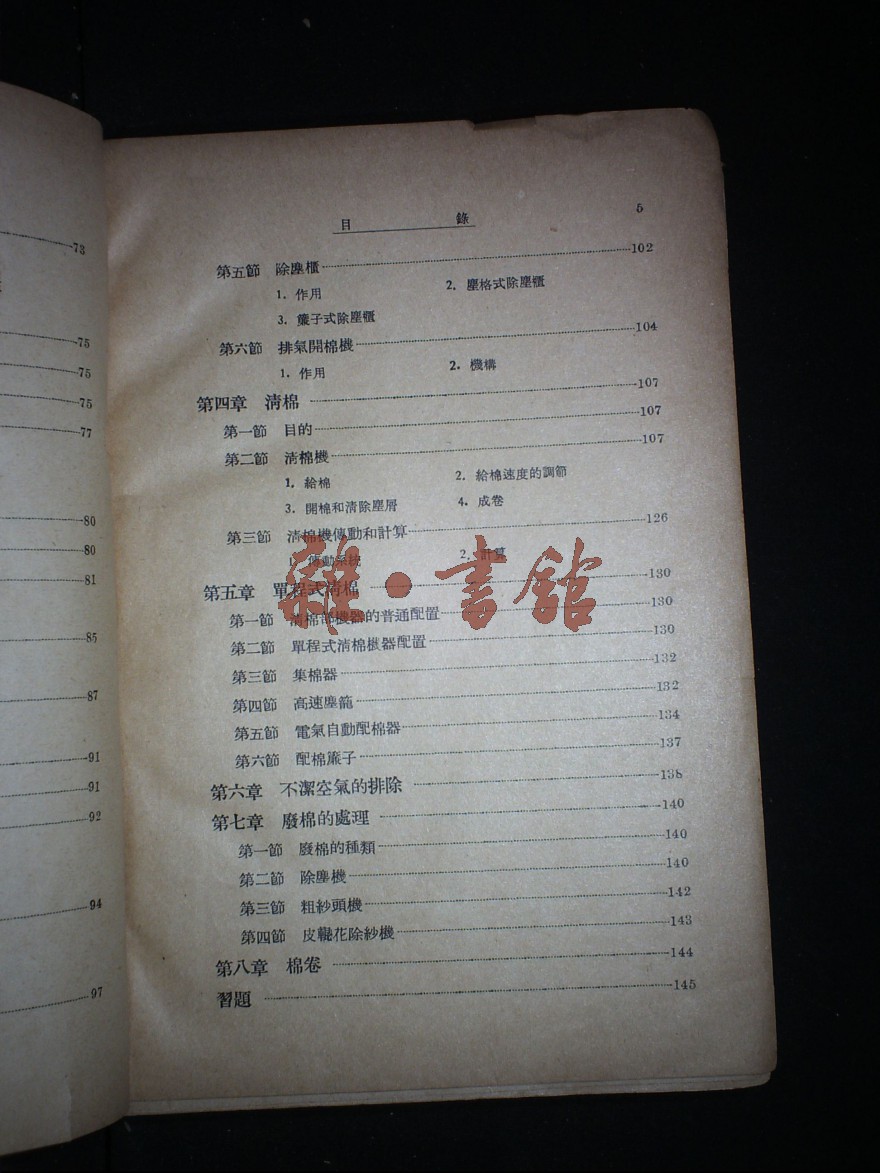 73
75
75
75
77
80
80
81
85
87
91
91
92
94
97
目 錄 5
第五節 除塵櫃 102
1. 作用 2. 塵格式除塵櫃
3. 簾子式除塵櫃
第六節 排氣開棉機 104
1. 作用 2. 機構
第四章 淸棉 107
第一節 目的 107
第二節 淸棉機 107
1. 給棉 2. 給棉速度的調節
3. 開棉和淸除塵屑 4. 成卷
第三節 淸棉機傳動和計算 126
1. 傳動系統 2. 計算
第五章 單程式淸棉 130
第一節 淸棉部機器的普通配置 130
第二節 單程式淸棉機器配置 130
第三節 集棉器 132
第四節 高速塵籠 132
第五節 電氣自動配棉器 134
第六節 配棉簾子 137
第六章 不潔空氣的排除 138
第七章 廢棉的處理 140
第一節 廢棉的種類 140
第二節 除塵機 140
第三節 粗紗頭機 142
第四節 皮輥花除紗機 143
第八章 棉卷 144
習題 145
雜·書館